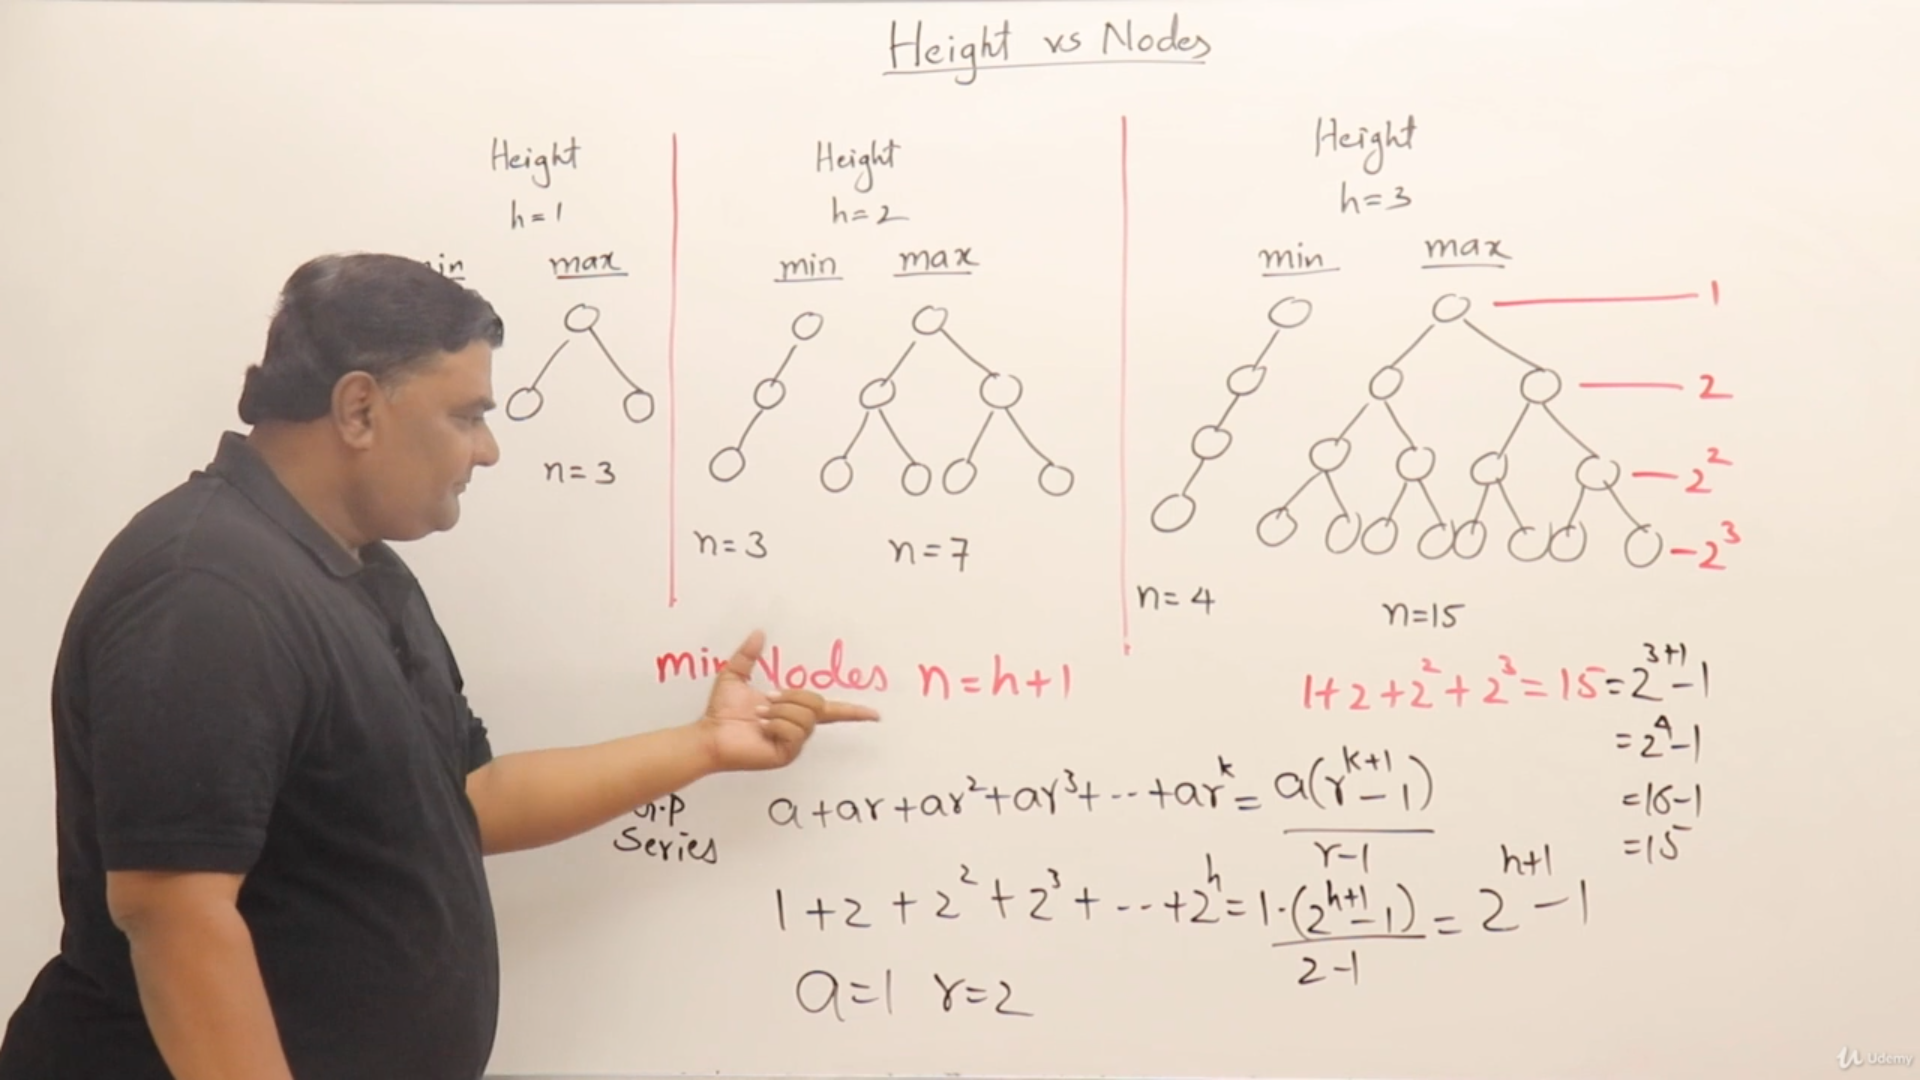 Height vs Nodes
Height
h=1
max
n=3
Height
h=2
min max
n=3 n=7
Height
h=3
min max
1
2
2²
2³
n=4
n=15
Nodes n=h+1
1+2+2²+2³=15=2³⁺¹-1
=2⁴-1
=16-1
=15
G.P Series
a+ar+ar²+ar³+--+ar^k = a(r^(k+1)-1)/(r-1)
1+2+2²+2³+--+2^h = 1·(2^(h+1)-1)/(2-1) = 2^(h+1)-1
a=1 r=2
Udemy